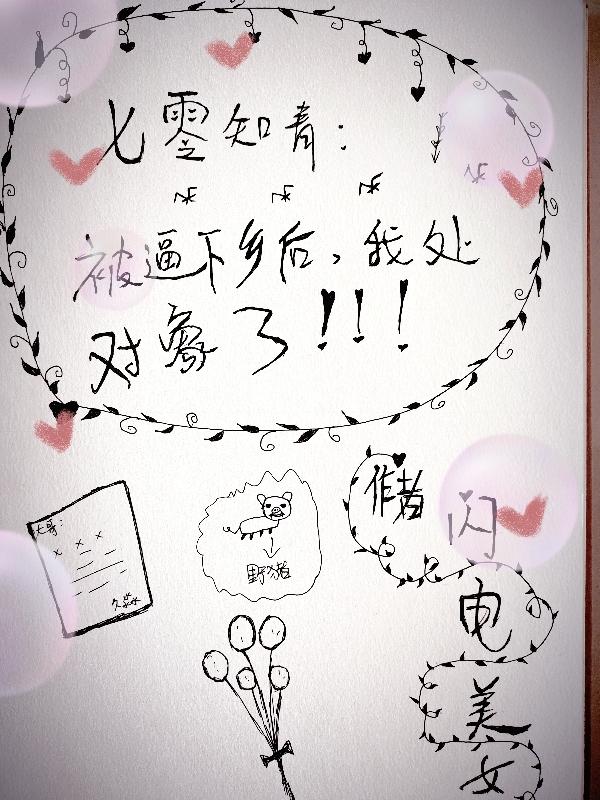 七零知青：
被逼下乡后，我处
对象了！！！
大哥：
野猪
作者
闪
电
美
女